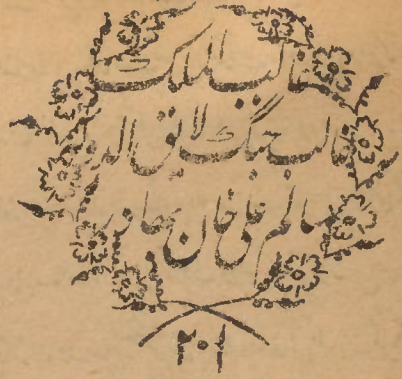 غالب الملک
غالب جنگ لایق الدوله
سالم علی خان بهادر
۲۰۱